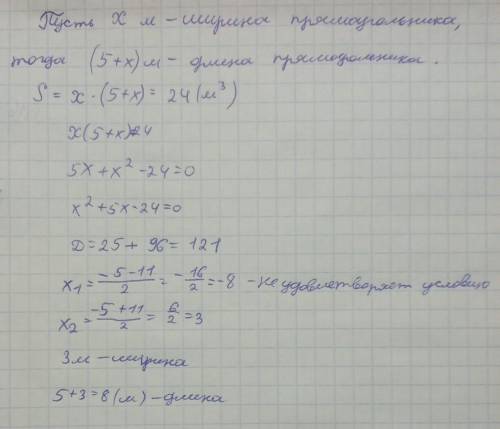 Пусть X м - ширина прямоугольника,
тогда (5+x) м - длина прямоугольника.
S = x · (5+x) = 24 (м³)
x(5+x)=24
5x + x² - 24 = 0
x² + 5x - 24 = 0
D = 25 + 96 = 121
x₁ = (-5-11)/2 = -16/2 = -8 - не удовлетворяет условию
x₂ = (-5+11)/2 = 6/2 = 3
3м - ширина
5+3=8 (м) - длина